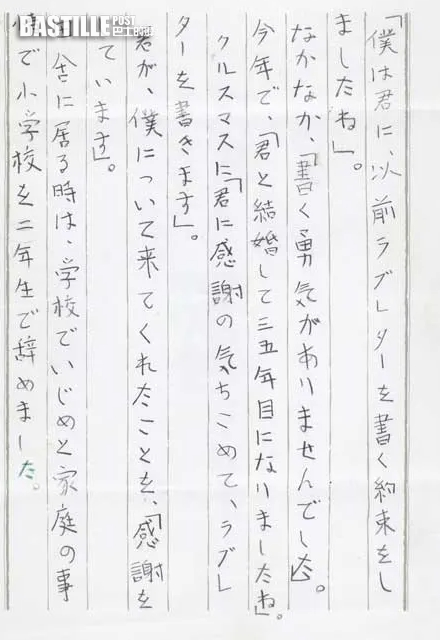 BASTILLE POST
巴士的報
「僕は君に、以前ラブレターを書く約束をし
ましたね」。
なかなか、「書く勇気がありませんでした」。
今年で、「君と結婚して三五年目になりましたね」。
クルスマスに「君に感謝の気ちこめて、ラブレ
ターを書きます」。
君が、僕について来てくれたことを、「感謝を
ています」。
舎に居る時は、学校でいじめと家庭の事
情で小学校を二年生で辞めました。